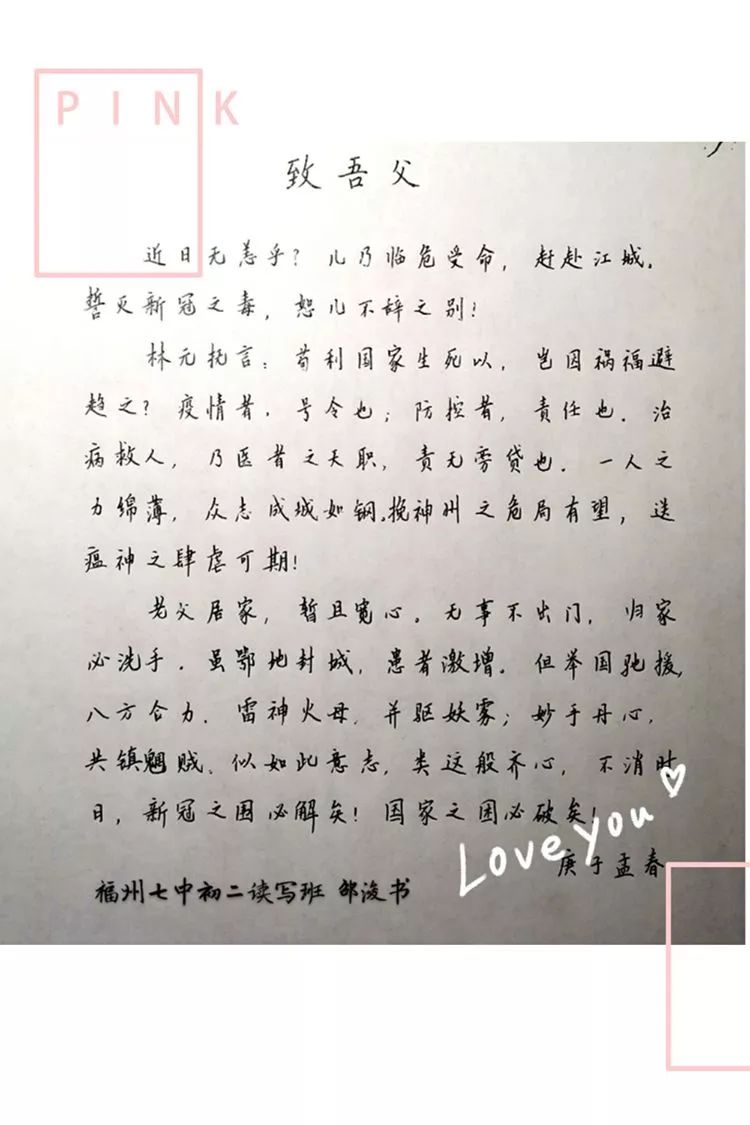 PINK
致吾父
近日无恙乎？儿乃临危受命，赶赴江城。
誓灭新冠之毒，恕儿不辞之别！
林元抚言：苟利国家生死以，岂因祸福避
趋之？疫情者，号令也；防控者，责任也。治
病救人，乃医者之天职，责无旁贷也。一人之
力绵薄，众志成城如钢。挽神州之危局有望，送
瘟神之肆虐可期！
老父居家，暂且宽心。无事不出门，归家
必洗手。虽鄂地封城，患者激增。但举国驰援，
八方合力。雷神火母，并驱妖雾；妙手丹心，
共镇魍贼。似如此意志，类这般齐心，不消时
日，新冠之困必解矣！国家之困必破矣！
Love you
庚子孟春
福州七中初二读写班 邹浚书